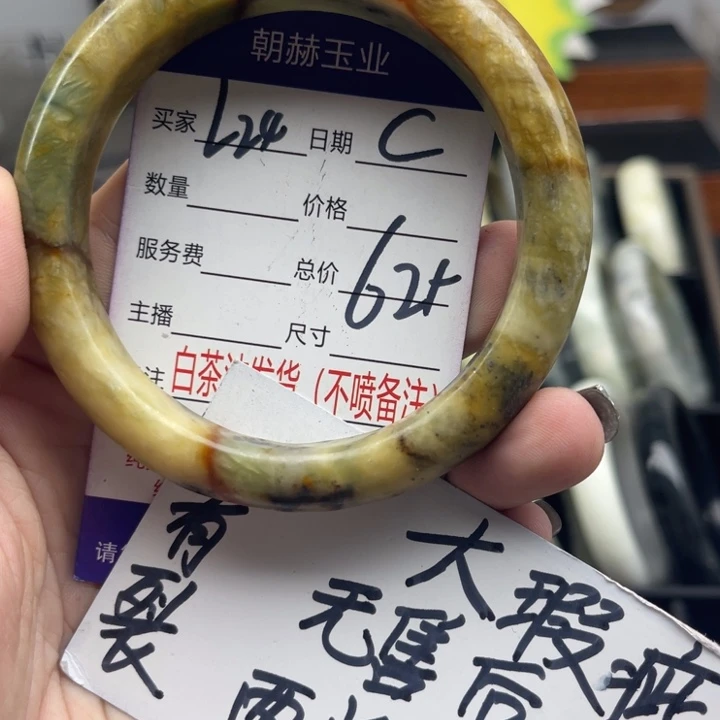 朝赫玉业
买家 L24 日期 C
数量 价格
服务费 总价 62t
主播 尺寸
注 白茶 发货（不喷备注）
请
有裂
大瑕疵
无售后